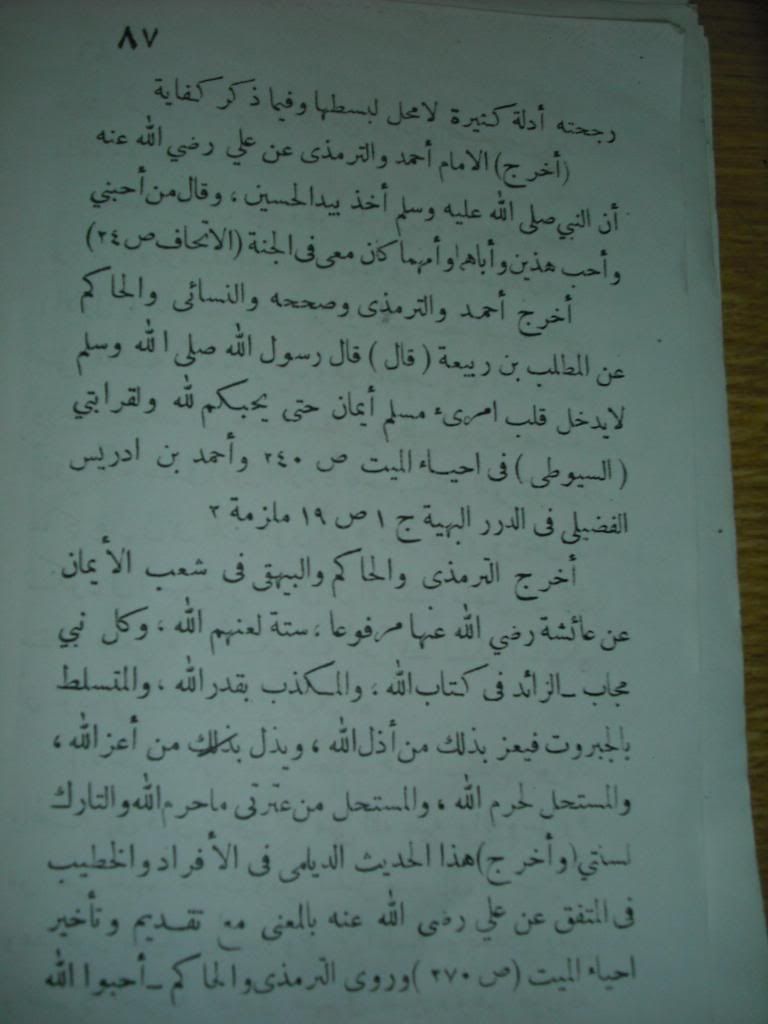 ٨٧
رجحته أدلة كثيرة لامحل لبسطها وفيما ذكر كفاية
(أخرج) الامام أحمد والترمذى عن علي رضي الله عنه
أن النبي صلى الله عليه وسلم أخذ بيد الحسين ، وقال من أحبني
وأحب هذين وأباهما وأمهما كان معى فى الجنة (الاتحاف ص ٢٤)
أخرج أحمد والترمذى وصححه والنسائى والحاكم
عن المطلب بن ربيعة ( قال ) قال رسول الله صلى الله وسلم
لايدخل قلب امرىء مسلم أيمان حتى يحبكم لله ولقرابتي
( السيوطى ) فى احياء الميت ص ٢٤٠ وأحمد بن ادريس
الفضيلى فى الدرر البهية ج ١ ص ١٩ ملزمة ٢
أخرج الترمذى والحاكم والبيهقى فى شعب الأيمان
عن عائشة رضي الله عنها مرفوعا ، ستة لعنهم الله ، وكل نبي
مجاب ــ الزائد فى كتاب الله ، والمكذب بقدر الله ، والمتسلط
بالجبروت فيعز بذلك من أذل الله ، ويذل بذلك من أعز الله ،
والمستحل لحرم الله ، والمستحل من عترتى ماحرم الله والتارك
لسنتي (وأخرج) هذا الحديث الديلمى فى الأفراد والخطيب
فى المتفق عن علي رضى الله عنه بالمعنى مع تقديم وتأخير
احياء الميت (ص ٢٧٠ ) وروى الترمذى والحاكم ــ أحبوا الله